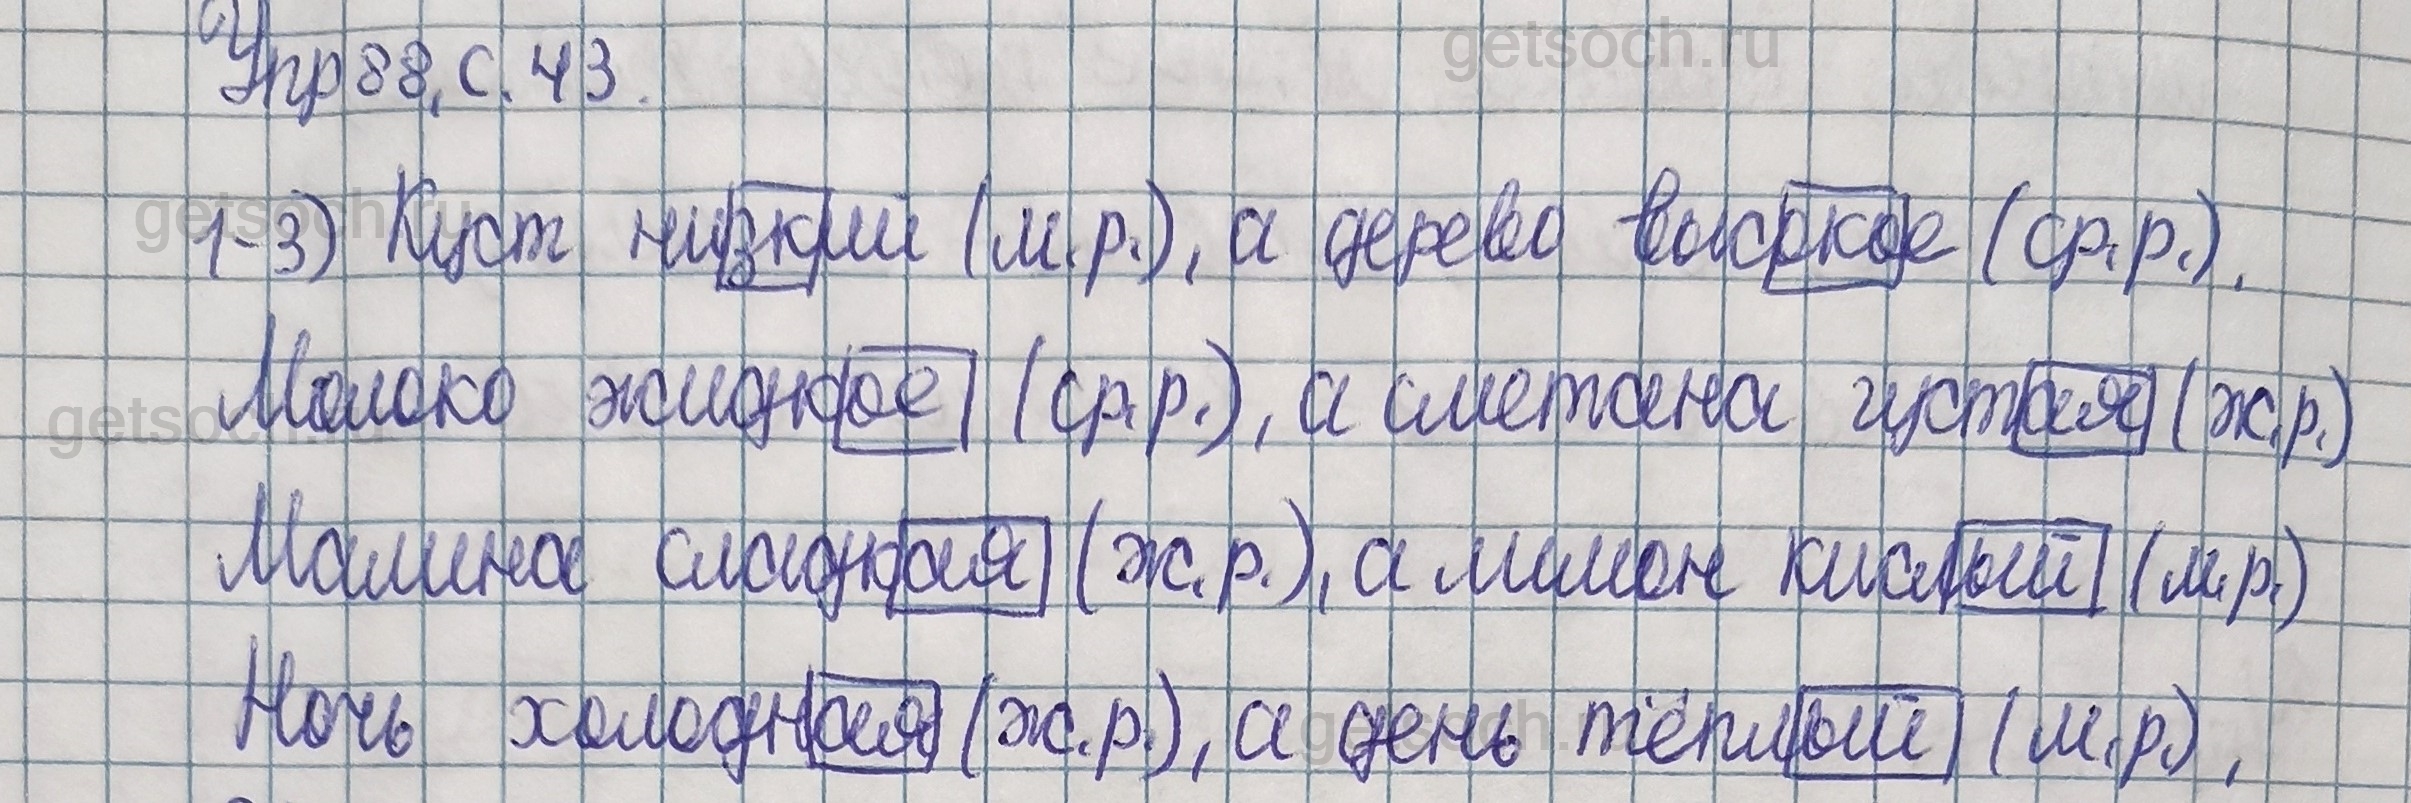 getsoch.ru
Упр 88, с. 43.
getsoch.ru
1-3) Куст низкий (м.р.), а дерево высокое (ср.р.).
getsoch.ru
Молоко жидкое (ср.р.), а сметана густая (ж.р.)
Малина сладкая (ж.р.), а лимон кислый (м.р.)
Ночь холодная (ж.р.), а день тёплый (м.р.),
getsoch.ru